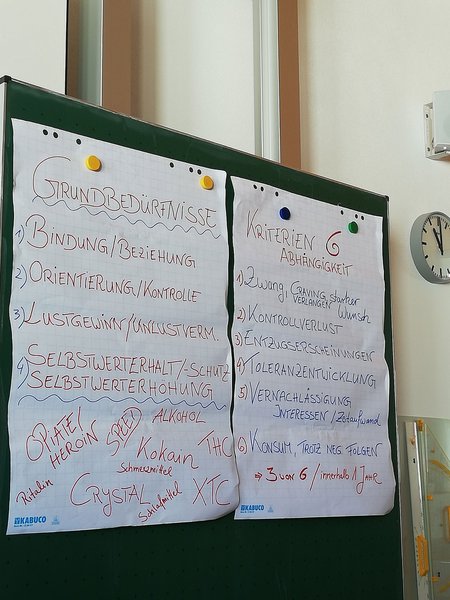 GRUNDBEDÜRFNISSE
1) BINDUNG/BEZIEHUNG
2) ORIENTIERUNG/KONTROLLE
3) LUSTGEWINN/UNLUSTVERM.
4) SELBSTWERTERHALT/-SCHUTZ
SELBSTWERTERHÖHUNG
OPIATE/
HEROIN
SPEED
ALKOHOL
Kokain
THC
Schmerzmittel
Ritalin
CRYSTAL
Schlafmittel
XTC
KABUCO
KRITERIEN 6
ABHÄNGIGKEIT
1) Zwang, CRAVING, starker
VERLANGEN Wunsch
2) KONTROLLVERLUST
3) ENTZUGSERSCHEINUNGEN
4) TOLERANZENTWICKLUNG
5) VERNACHLÄSSIGUNG
INTERESSEN/Zeitaufwand
6) KONSUM, TROTZ NEG. FOLGEN
⇒ 3 von 6 / innerhalb 1 JAHR
KABUCO